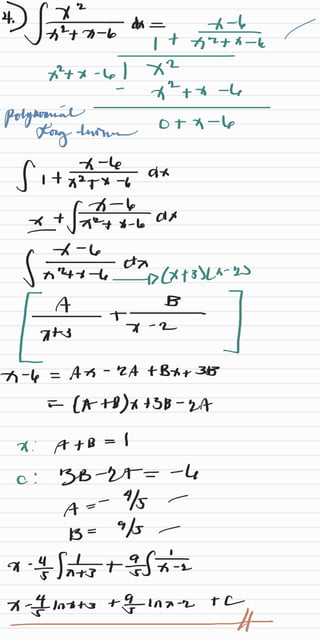 4.) ∫ x²/(x²+x-6) dx =
1 + (x-6)/(x²+x-6)
x²+x-6 | x²
- x²+x-6
0 + x-6
Polynomial
Long
∫ 1 + (x-6)/(x²+x-6) dx
x + ∫ (x-6)/(x²+x-6) dx
∫ (x-6)/(x²+x-6) dx → (x+3)(x-2)
[ A/(x+3) + B/(x-2) ]
x-6 = Ax - 2A + Bx + 3B
= (A+B)x + 3B - 2A
x: A+B = 1
c: 3B-2A = -6
A = - 4/5
B = 9/5
x - 4/5 ∫ 1/(x+3) + 9/5 ∫ 1/(x-2)
x - 4/5 ln x+3 + 9/5 ln x-2 + C